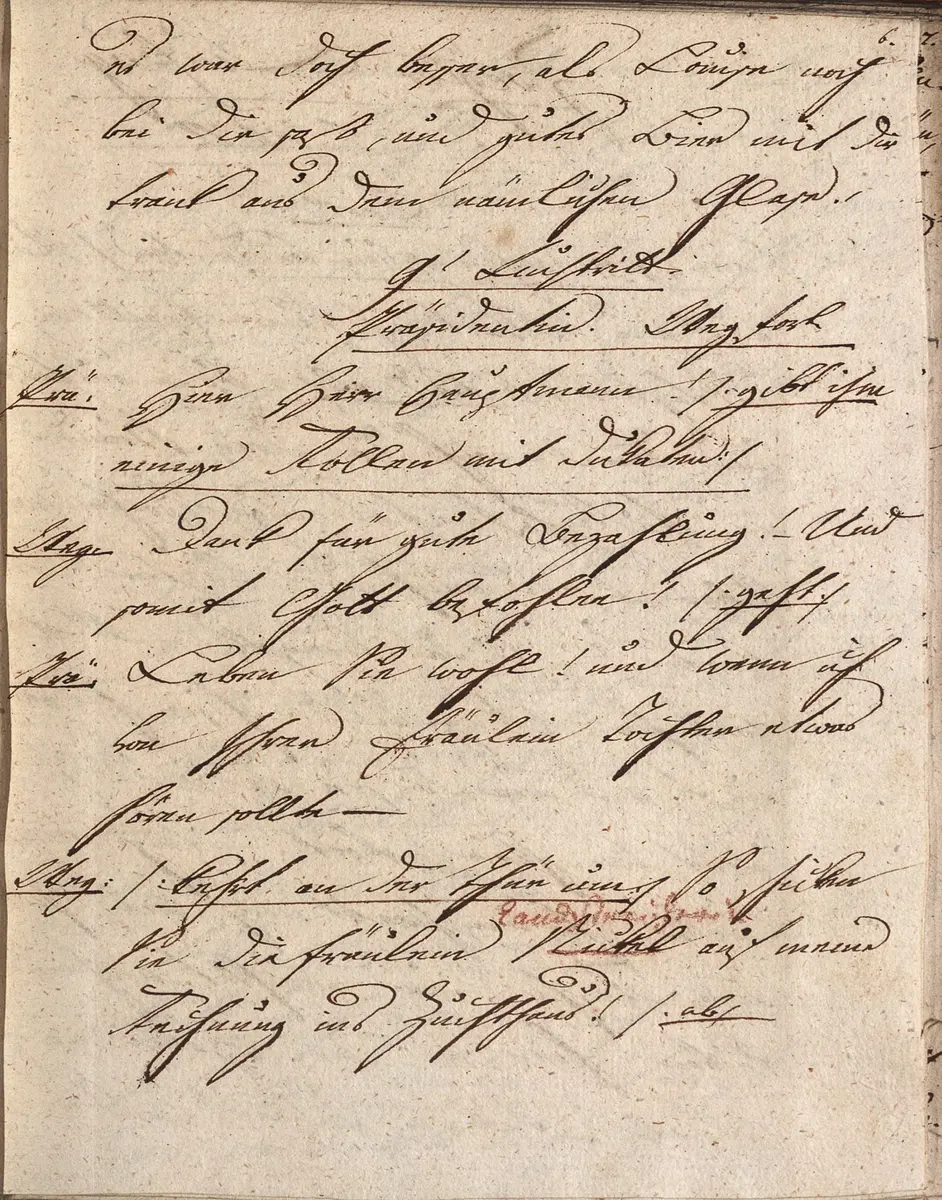 6.
es war doch besser, als Louise noch
bei dir saß, und gutes Bier mit dir
trank aus dem nämlichen Glase.
9' Auftritt.
Präsidentin. Weg, fort
Prä: Herr Herr Hauptmann! /: gibt ihm
einige Rollen mit Dukaten :/
Weg. Dank für gute Bezahlung! – Und
somit Gott befohlen! /: geht :/
Prä. Leben Sie wohl! und wenn ich
von Ihrer Fräulein Tochter etwas
hören sollte —
Weg: /: kehrt an der Thür um :/ So schicken
Landstreicherin
Sie die Fräulein Nickel auf meine
Rechnung ins Zuchthaus! /: ab :/